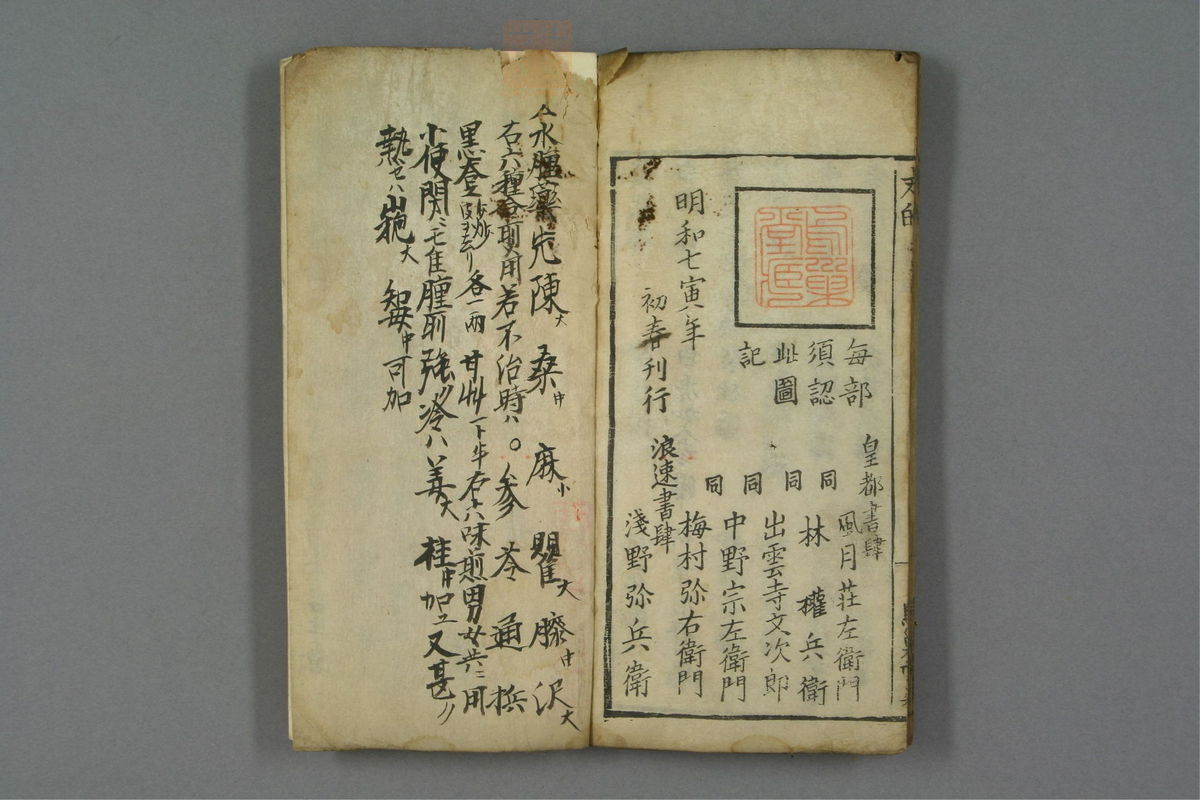 每部
須認
此圖
記
皇都書肆
風月荘左衛門
同 林 權兵衛
同 出雲寺文次郎
同 中野宗左衛門
同 梅村弥右衛門
明和七寅年
初春刊行
浪速書肆
淺野弥兵衛
水腫藥 陳大 桑中 麻小 瞿大 藤中 沢大
右六種合煎用若不治時ハ○参 苓 通 梹
黒 各一両 甘艸 右六味煎男女共ニ用
小便閉 腫 強 冷ハ姜大 桂中加エ又甚〃
熱 大 知母中可加